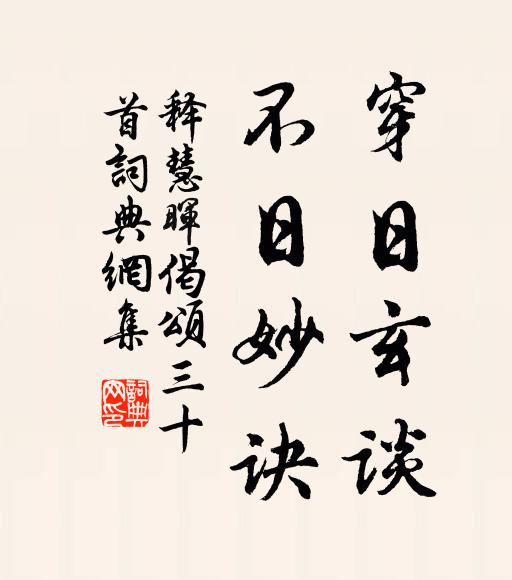 穿日玄谈
不日妙诀
释慧暉偈頌三十
首詞典網集
詞典
网印